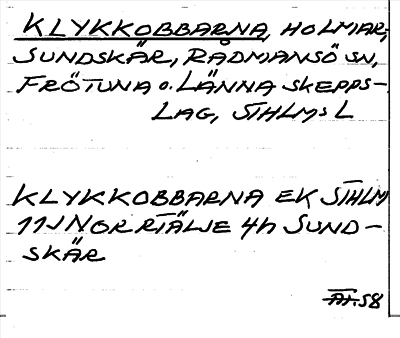 KLYKKOBBARNA, HOLMAR,
SUNDSKÄR, RÅDMANSÖ SN,
FRÖTUNA O. LÄNNA SKEPPS-
LAG, STHLMS L
KLYKKOBBARNA EK STHLM
11J NORRTÄLJE 4h SUND-
SKÄR
58